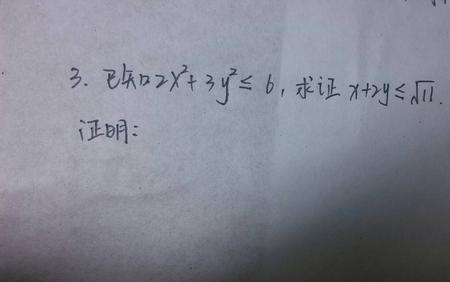 3. 已知2x²+3y²≤6, 求证 x+2y≤√11.
证明: